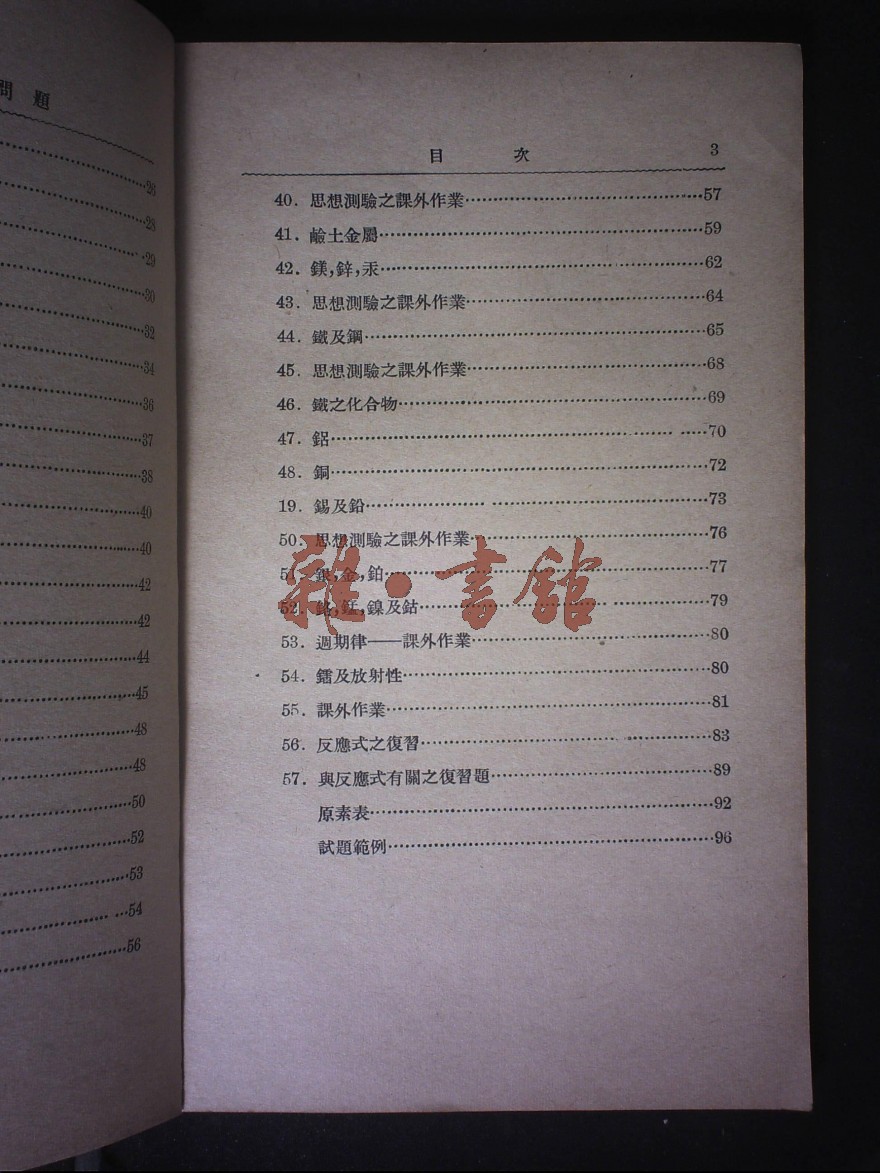 問題
28
28
29
30
32
34
36
37
38
40
40
42
42
44
45
48
48
50
52
53
54
56
目次 3
40. 思想測驗之課外作業 57
41. 鹼土金屬 59
42. 鎂,鋅,汞 62
43. 思想測驗之課外作業 64
44. 鐵及鋼 65
45. 思想測驗之課外作業 68
46. 鐵之化合物 69
47. 鋁 70
48. 銅 72
19. 錫及鉛 73
50. 思想測驗之課外作業 76
51. 銀,金,鉑 77
52. 鉻,錳,鎳及鈷 79
53. 週期律——課外作業 80
54. 鐳及放射性 80
55. 課外作業 81
56. 反應式之復習 83
57. 與反應式有關之復習題 89
原素表 92
試題範例 96
雜·書館